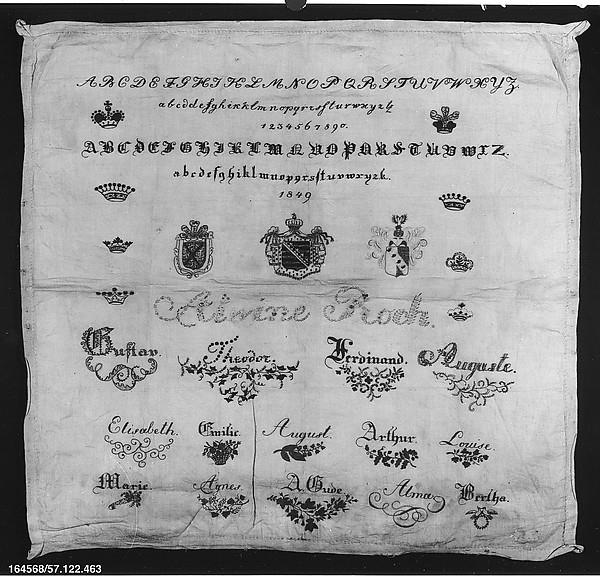 A B C D E F G H I K L M N O P Q R S T U V W X Y Z.
a b c d e f g h i k l m n o p q r s t u v w x y z
1 2 3 4 5 6 7 8 9 0.
A B C D E F G H I K L M N O P Q R S T U V W X Z.
a b c d e f g h i k l m n o p q r s t u v w x y z.
1849
Alwine Koch.
Gustav. Theodor. Ferdinand. Auguste.
Elisabeth. Emilie. August. Arthur. Louise.
Marie. Agnes. A. Gude. Alma. Bertha.
164568/57.122.463